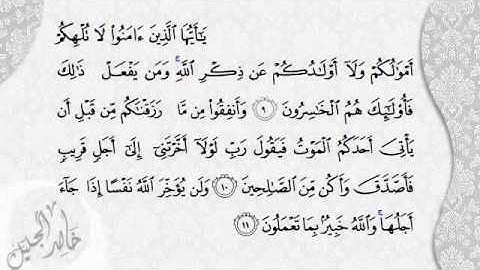 يَـٰٓأَيُّهَا ٱلَّذِينَ ءَامَنُوا۟ لَا تُلْهِكُمْ
أَمْوَٰلُكُمْ وَلَآ أَوْلَـٰدُكُمْ عَن ذِكْرِ ٱللَّهِ ۚ وَمَن يَفْعَلْ ذَٰلِكَ
فَأُو۟لَـٰٓئِكَ هُمُ ٱلْخَـٰسِرُونَ ٩ وَأَنفِقُوا۟ مِن مَّا رَزَقْنَـٰكُم مِّن قَبْلِ أَن
يَأْتِىَ أَحَدَكُمُ ٱلْمَوْتُ فَيَقُولَ رَبِّ لَوْلَآ أَخَّرْتَنِىٓ إِلَىٰٓ أَجَلٍ قَرِيبٍ
فَأَصَّدَّقَ وَأَكُن مِّنَ ٱلصَّـٰلِحِينَ ١٠ وَلَن يُؤَخِّرَ ٱللَّهُ نَفْسًا إِذَا جَآءَ
أَجَلُهَا ۚ وَٱللَّهُ خَبِيرٌۢ بِمَا تَعْمَلُونَ ١١
خالد الجليل